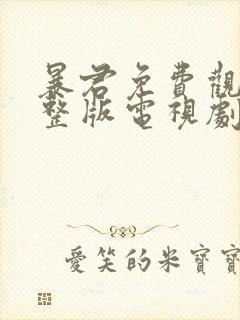 暴君免費觀
整版電視劇
愛笑的米寶寶